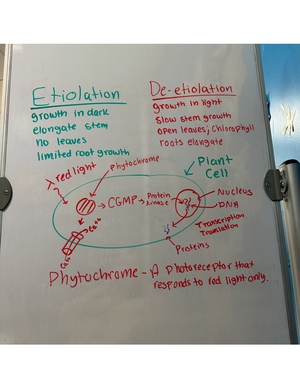 Etiolation
growth in dark
elongate stem
no leaves
limited root growth
De-etiolation
growth in light
slow stem growth
open leaves; Chlorophyll
roots elongate
red light
phytochrome
Plant
Cell
CGMP
Protein
kinase
Nucleus
DNA
Transcription
Translation
Proteins
Ca++
Ca++
Phytochrome - A photoreceptor that
responds to red light only.